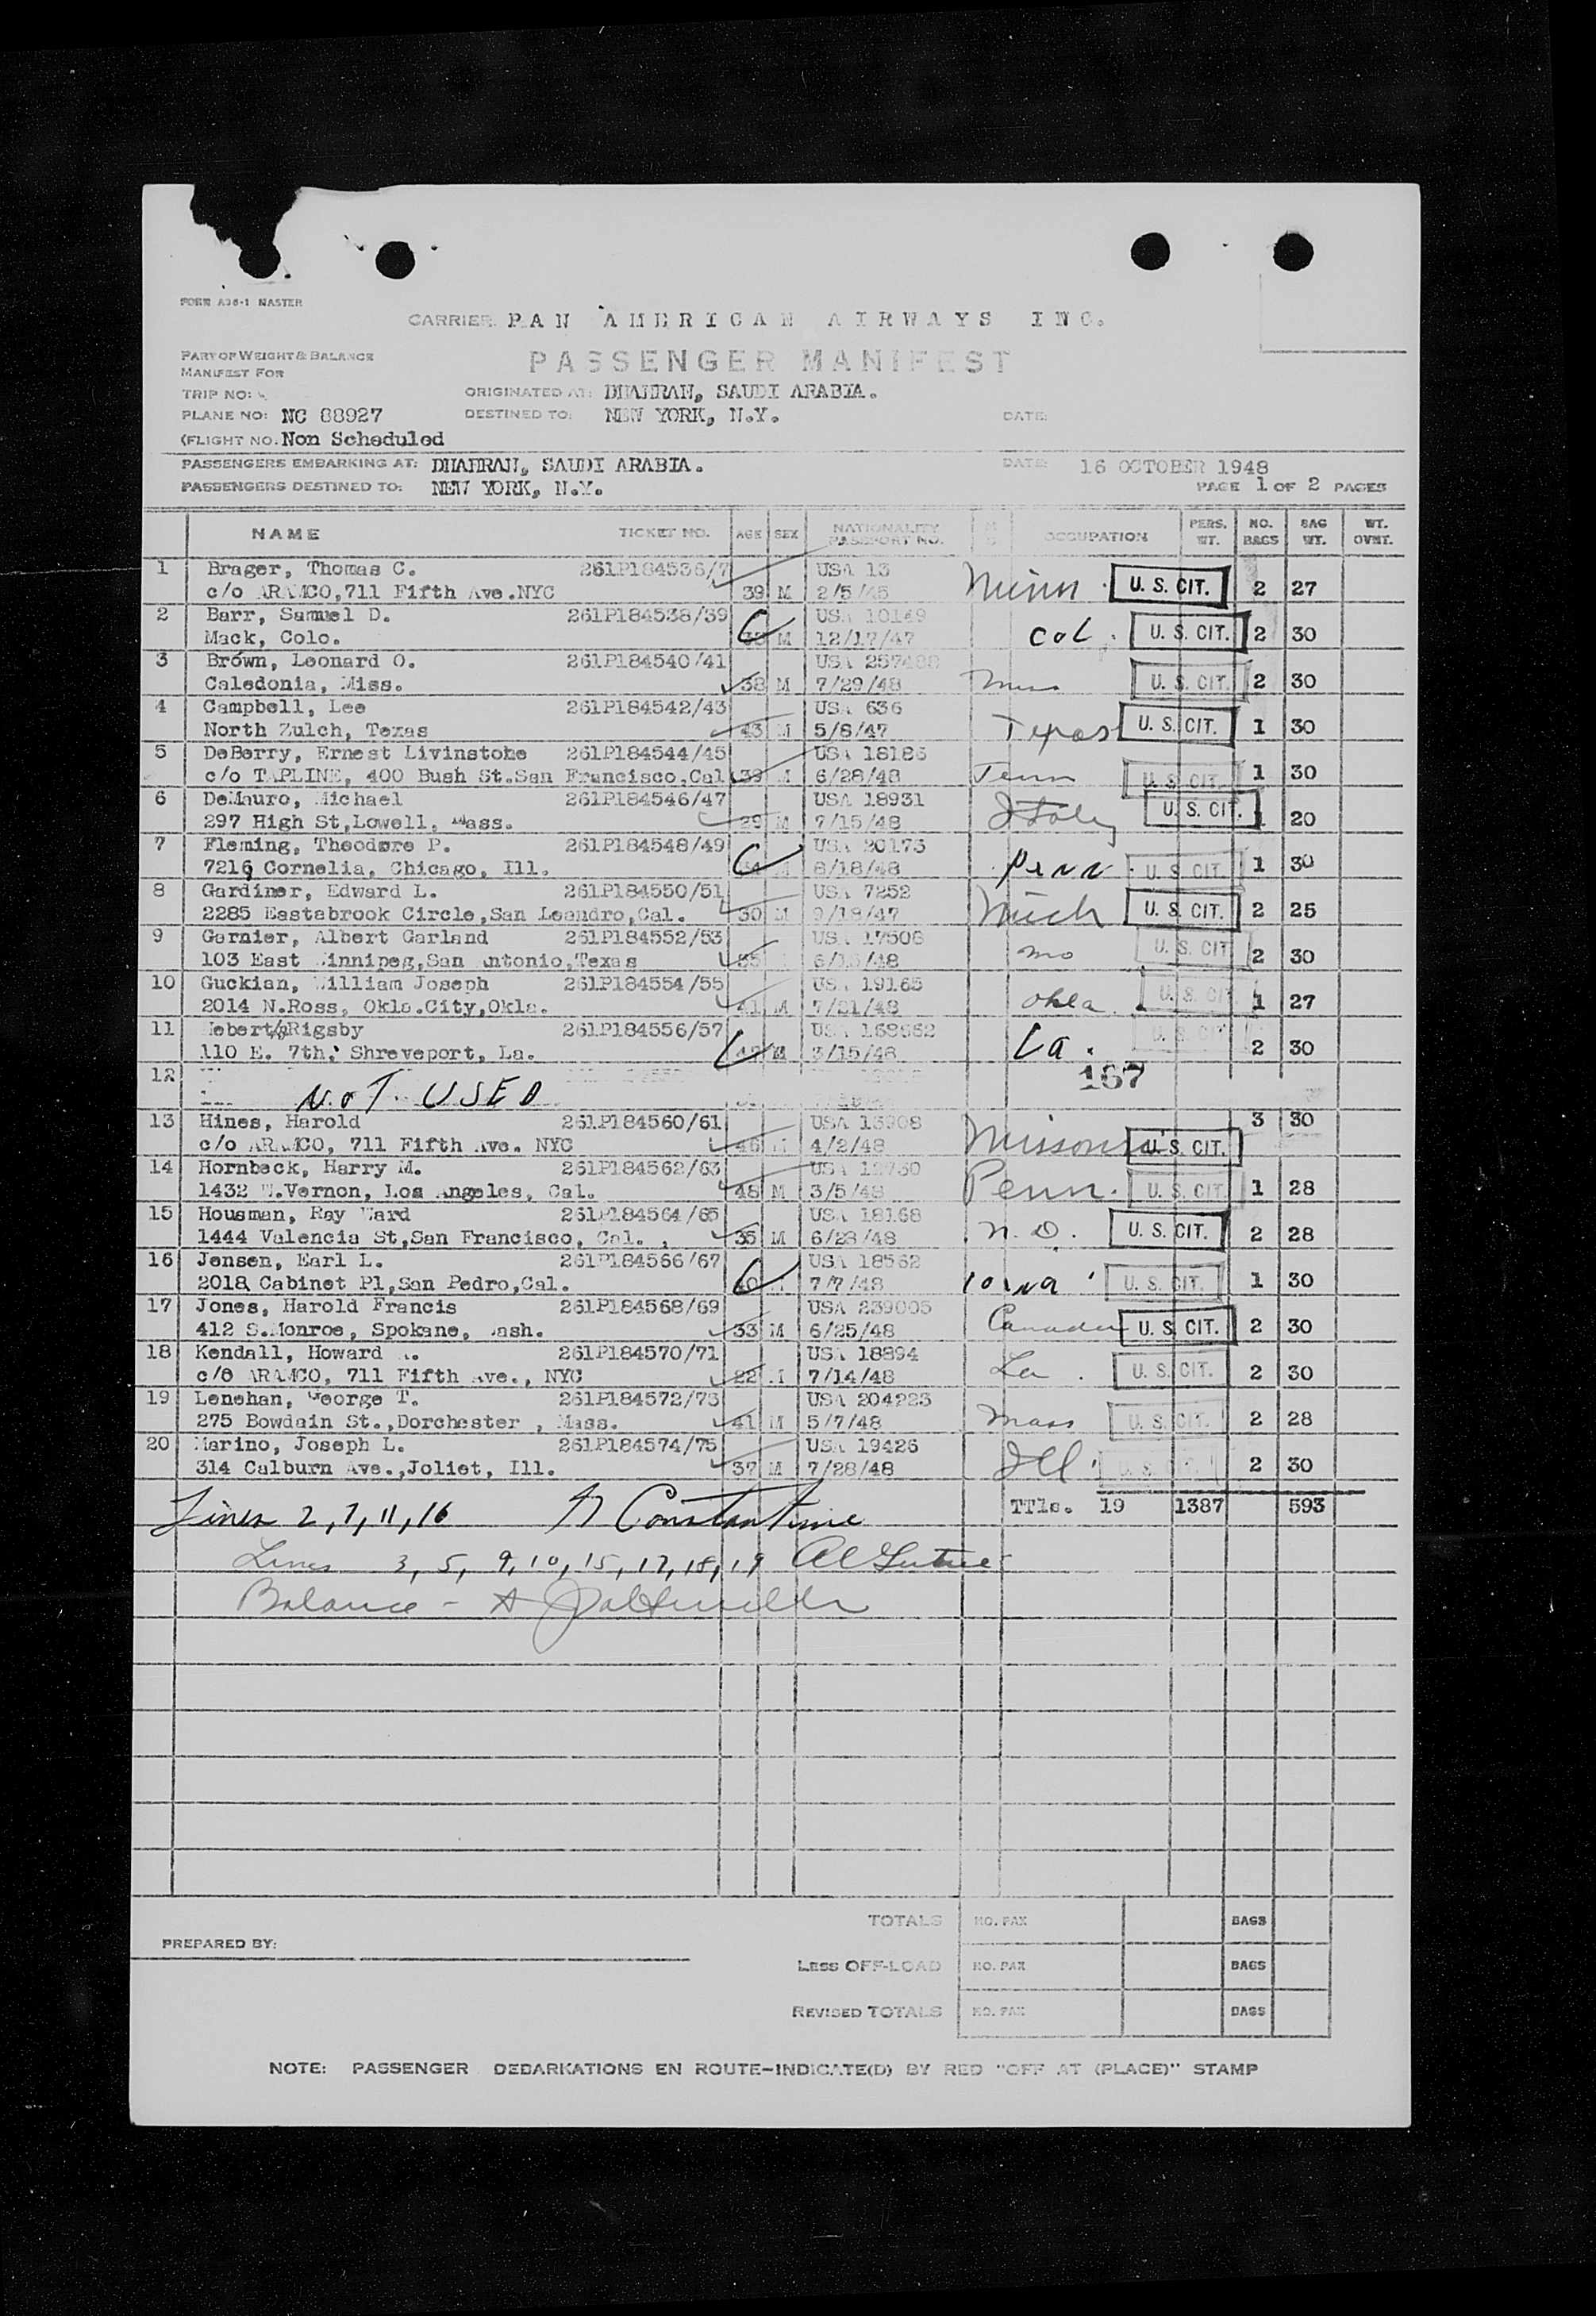 FORM A36-1 MASTER
CARRIER PAN AMERICAN AIRWAYS INC.
PART OF WEIGHT & BALANCE
MANIFEST FOR
PASSENGER MANIFEST
TRIP NO:
ORIGINATED AT: DHAHRAN, SAUDI ARABIA.
PLANE NO: NC 88927
DESTINED TO: NEW YORK, N.Y.
DATE:
(FLIGHT NO. Non Scheduled
PASSENGERS EMBARKING AT: DHAHRAN, SAUDI ARABIA. DATE: 16 OCTOBER 1948
PASSENGERS DESTINED TO: NEW YORK, N.Y. PAGE 1 OF 2 PAGES
NAME TICKET NO. AGE SEX NATIONALITY PASSPORT NO. OCCUPATION PERS. WT. NO. BAGS BAG WT. WT. OVWT.
1 Brager, Thomas C. 261P184536/7 USA 13
c/o ARAMCO,711 Fifth Ave.NYC 39 M 2/5/48 Minn. U. S. CIT. 2 27
2 Barr, Samuel D. 261P184538/39 USA 10149
Mack, Colo. M 12/17/47 Col. U. S. CIT. 2 30
3 Brown, Leonard O. 261P184540/41 USA
Caledonia, Miss. 38 M 7/29/48 Miss U. S. CIT. 2 30
4 Campbell, Lee 261P184542/43 USA 636
North Zulch, Texas 43 M 5/8/47 Texas U. S. CIT. 1 30
5 DeBerry, Ernest Livinstone 261P184544/45 USA 18186
c/o TAPLINE, 400 Bush St.San Francisco,Cal 39 M 6/28/48 Tenn U. S. CIT. 1 30
6 DeMauro, Michael 261P184546/47 USA 18931
297 High St,Lowell, Mass. 29 M 7/15/48 Italy U. S. CIT. 1 20
7 Fleming, Theodore P. 261P184548/49 USA 20173
7216 Cornelia, Chicago, Ill. 8/18/48 Penn. U. S. CIT. 1 30
8 Gardiner, Edward L. 261P184550/51 USA 7252
2285 Eastabrook Circle,San Leandro,Cal. 30 M 9/18/47 Mich U. S. CIT. 2 25
9 Garnier, Albert Garland 261P184552/53 USA 17508
103 East Winnipeg,San Antonio,Texas 35 Mo U. S. CIT 2 30
10 Guckian, William Joseph 261P184554/55 USA 19165
2014 N.Ross, Okla.City,Okla. 41 M 7/21/48 Okla. U. S. CIT 1 27
11 Hebert, Rigsby 261P184556/57 USA
110 E. 7th, Shreveport, La. M 3/15/48 La. U. S. CIT. 2 30
12 NOT USED 167
13 Hines, Harold 261P184560/61 USA 13908 3 30
c/o ARAMCO, 711 Fifth Ave. NYC 46 M 4/2/48 Missouri U. S. CIT.
14 Hornbeck, Harry M. 261P184562/63 USA
1432 W.Vernon, Los Angeles, Cal. 48 M 3/5/48 Penn. U. S. CIT 1 28
15 Housman, Ray Ward 261P184564/65 USA 18168
1444 Valencia St,San Francisco, Cal. , 35 M 6/28/48 N. D. U. S. CIT. 2 28
16 Jensen, Earl L. 261P184566/67 USA 18562
2018 Cabinet Pl,San Pedro,Cal. 40 7/7/48 Iowa U. S. CIT. 1 30
17 Jones, Harold Francis 261P184568/69 USA 239005
412 S.Monroe, Spokane, Wash. 33 M 6/25/48 Canada U. S. CIT. 2 30
18 Kendall, Howard A. 261P184570/71 USA 18894
c/o ARAMCO, 711 Fifth Ave., NYC 22 M 7/14/48 La. U. S. CIT. 2 30
19 Lenehan, George T. 261P184572/73 USA 204223
275 Bowdain St.,Dorchester , Mass. 41 M 5/7/48 Mass U. S. CIT. 2 28
20 Marino, Joseph L. 261P184574/75 USA 19426
314 Calburn Ave.,Joliet, Ill. 37 M 7/28/48 Ill. U. S. CIT. 2 30
Lines 2, 7, 11, 16 Constantine TTls. 19 1387 593
Lines 3, 5, 9, 10, 15, 17, 18, 19
Balance -
TOTALS NO. PAX BAGS
PREPARED BY:
LESS OFF-LOAD NO. PAX BAGS
REVISED TOTALS NO. PAX BAGS
NOTE: PASSENGER DEBARKATIONS EN ROUTE-INDICATE(D) BY RED "OFF AT (PLACE)" STAMP